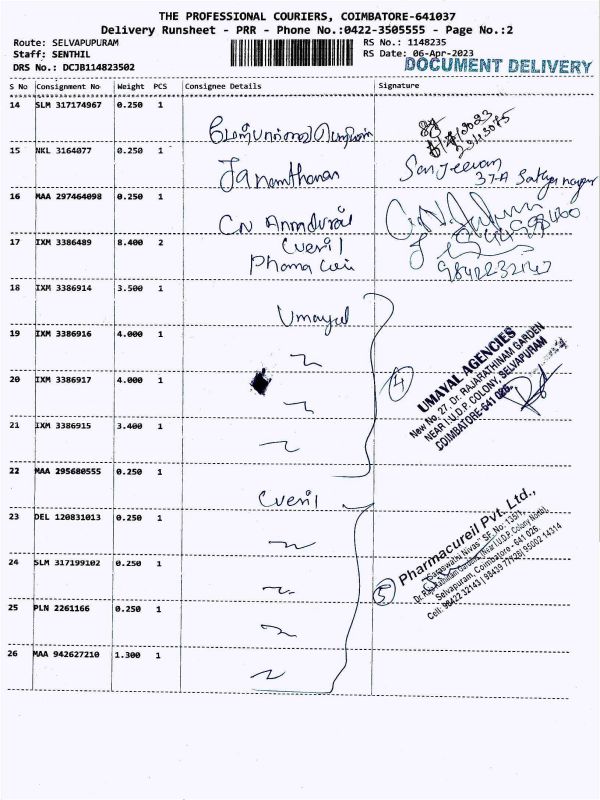 THE PROFESSIONAL COURIERS, COIMBATORE-641037
Delivery Runsheet - PRR - Phone No.:0422-3505555 - Page No.:2
Route: SELVAPUPURAM
RS No.: 1148235
Staff: SENTHIL
RS Date: 06-Apr-2023
DRS No.: DCJB114823502
DOCUMENT DELIVERY
S No Consignment No Weight PCS Consignee Details Signature
14 SLM 317174967 0.250 1
15 NKL 3164077 0.250 1
Sanjeevan
37-A Sathya nagar
16 MAA 297464098 0.250 1
CN Annadurai
17 IXM 3386489 8.400 2
Cureil
Pharma
9842232147
18 IXM 3386914 3.500 1
Umayal
19 IXM 3386916 4.000 1
20 IXM 3386917 4.000 1
4
UMAYAL AGENCIES
New No. 27, Dr. RAJARATHINAM GARDEN
NEAR I.U.D.P. COLONY, SELVAPURAM
COIMBATORE-641 026.
21 IXM 3386915 3.400 1
22 MAA 295680555 0.250 1
Cureil
23 DEL 120831013 0.250 1
24 SLM 317199102 0.250 1
5
Pharmacureil Pvt. Ltd.,
"Saraswathi Nivas" SF. No: 135/1,
Dr. Rajarathinam Garden, (Near I.U.D.P. Colony North),
Selvapuram, Coimbatore - 641 026.
Cell: 98422 32143 | 98439 77728 | 95002 14314
25 PLN 2261166 0.250 1
26 MAA 942627210 1.300 1